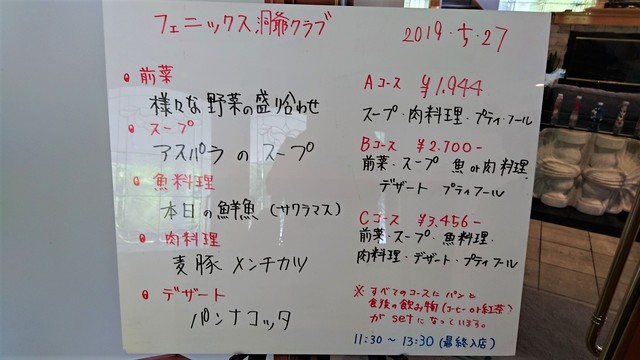 フェニックス洞爺クラブ
2019.5.27
● 前菜
様々な野菜の盛り合わせ
● スープ
アスパラのスープ
● 魚料理
本日の鮮魚(サクラマス)
● 肉料理
麦豚メンチカツ
● デザート
パンナコッタ
Aコース ¥1,944
スープ・肉料理・プティフール
Bコース ¥2,700-
前菜・スープ 魚or肉料理
デザート プティフール
Cコース ¥3,456-
前菜・スープ・魚料理・
肉料理・デザート・プティフール
※ すべてのコースにパンと
食後の飲み物(コーヒーor紅茶)
がsetになっています。
11:30～13:30(最終入店)